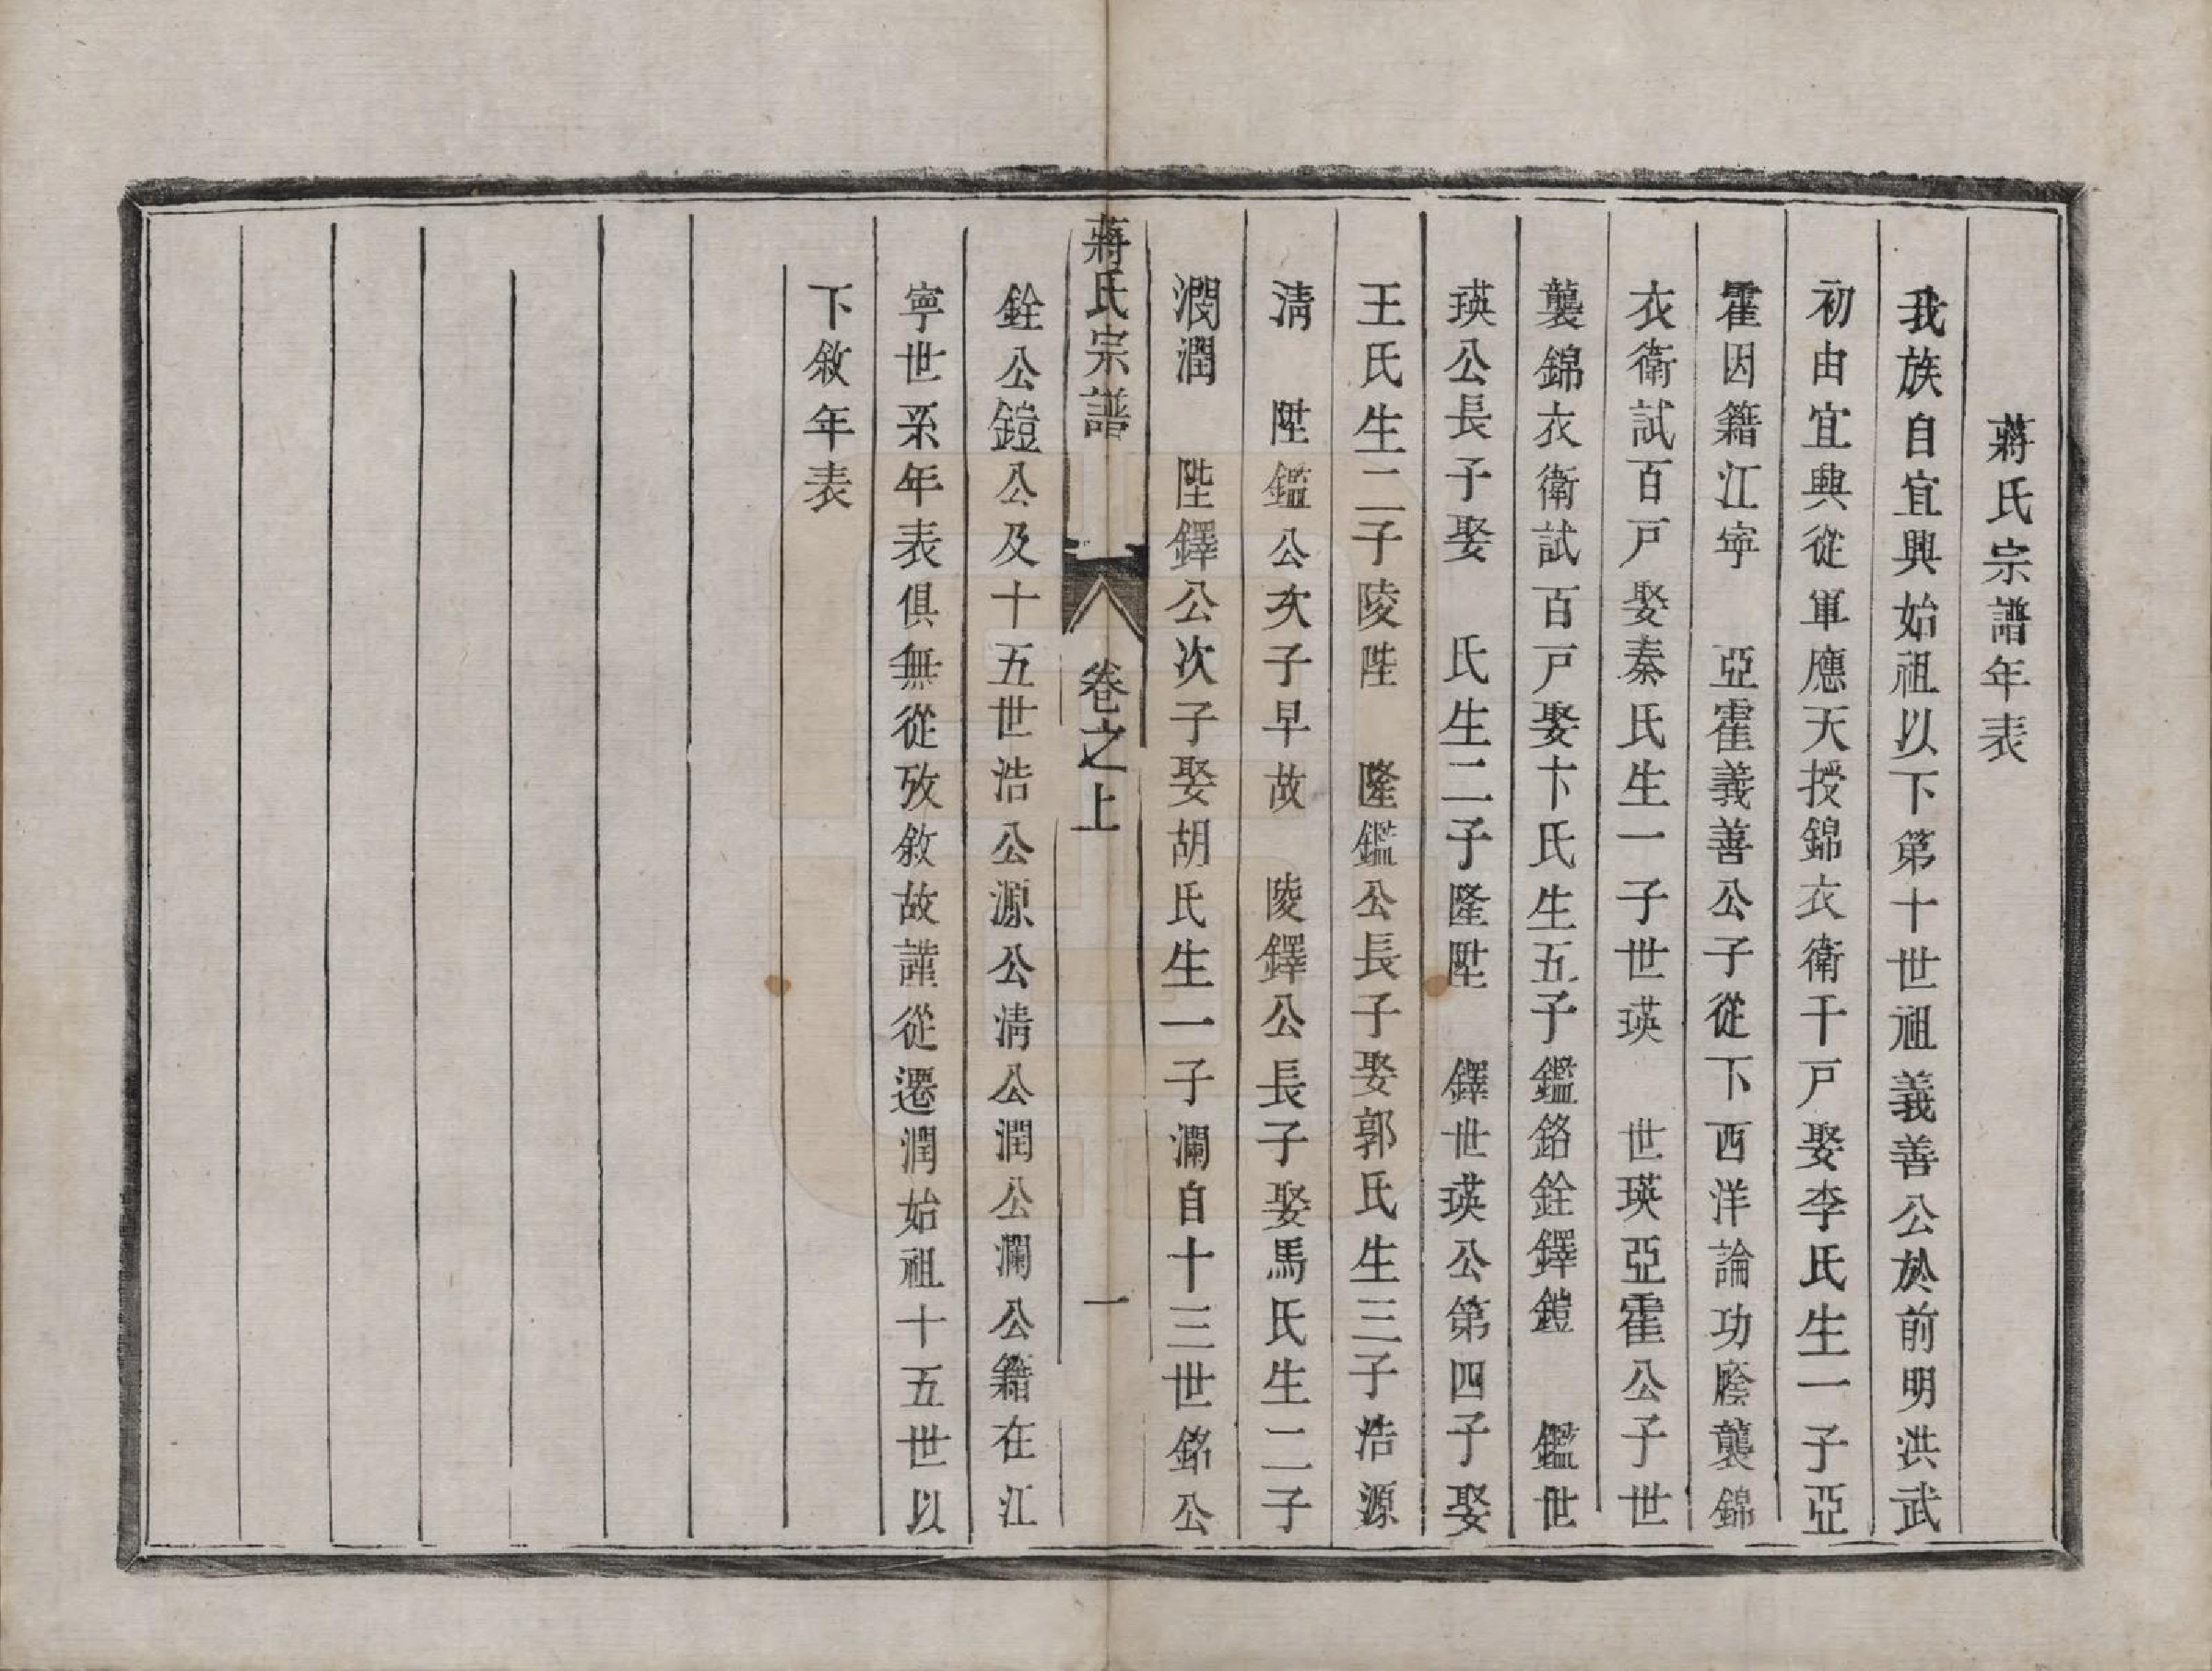 蔣氏宗譜年表
我族自宜興始祖以下第十世祖義善公於前明洪武
初由宜興從軍應天授錦衣衛千戸娶李氏生一子亞
霍因籍江寧　亞霍義善公子從下西洋論功廕襲錦
衣衛試百戸娶秦氏生一子世瑛　世瑛亞霍公子世
襲錦衣衛試百戸娶卞氏生五子鑑銘銓鐸鎧　鑑世
瑛公長子娶　氏生二子隆陞　鐸世瑛公第四子娶
王氏生二子陵陛　隆鑑公長子娶郭氏生三子浩源
淸　陞鑑公次子早故　陵鐸公長子娶馬氏生二子
潤潤　陛鐸公次子娶胡氏生一子瀾自十三世銘公
蔣氏宗譜　卷之上　一
銓公鎧公及十五世浩公源公淸公潤公瀾公籍在江
寧世系年表俱無從攷敘故謹從遷潤始祖十五世以
下敘年表